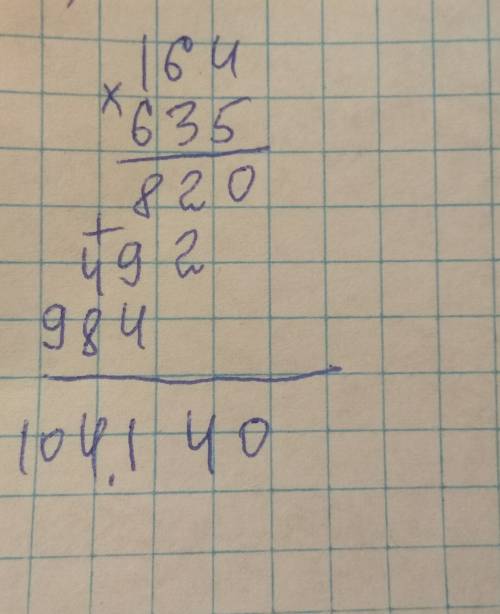 164
×
635
820
+
492
984
104.140